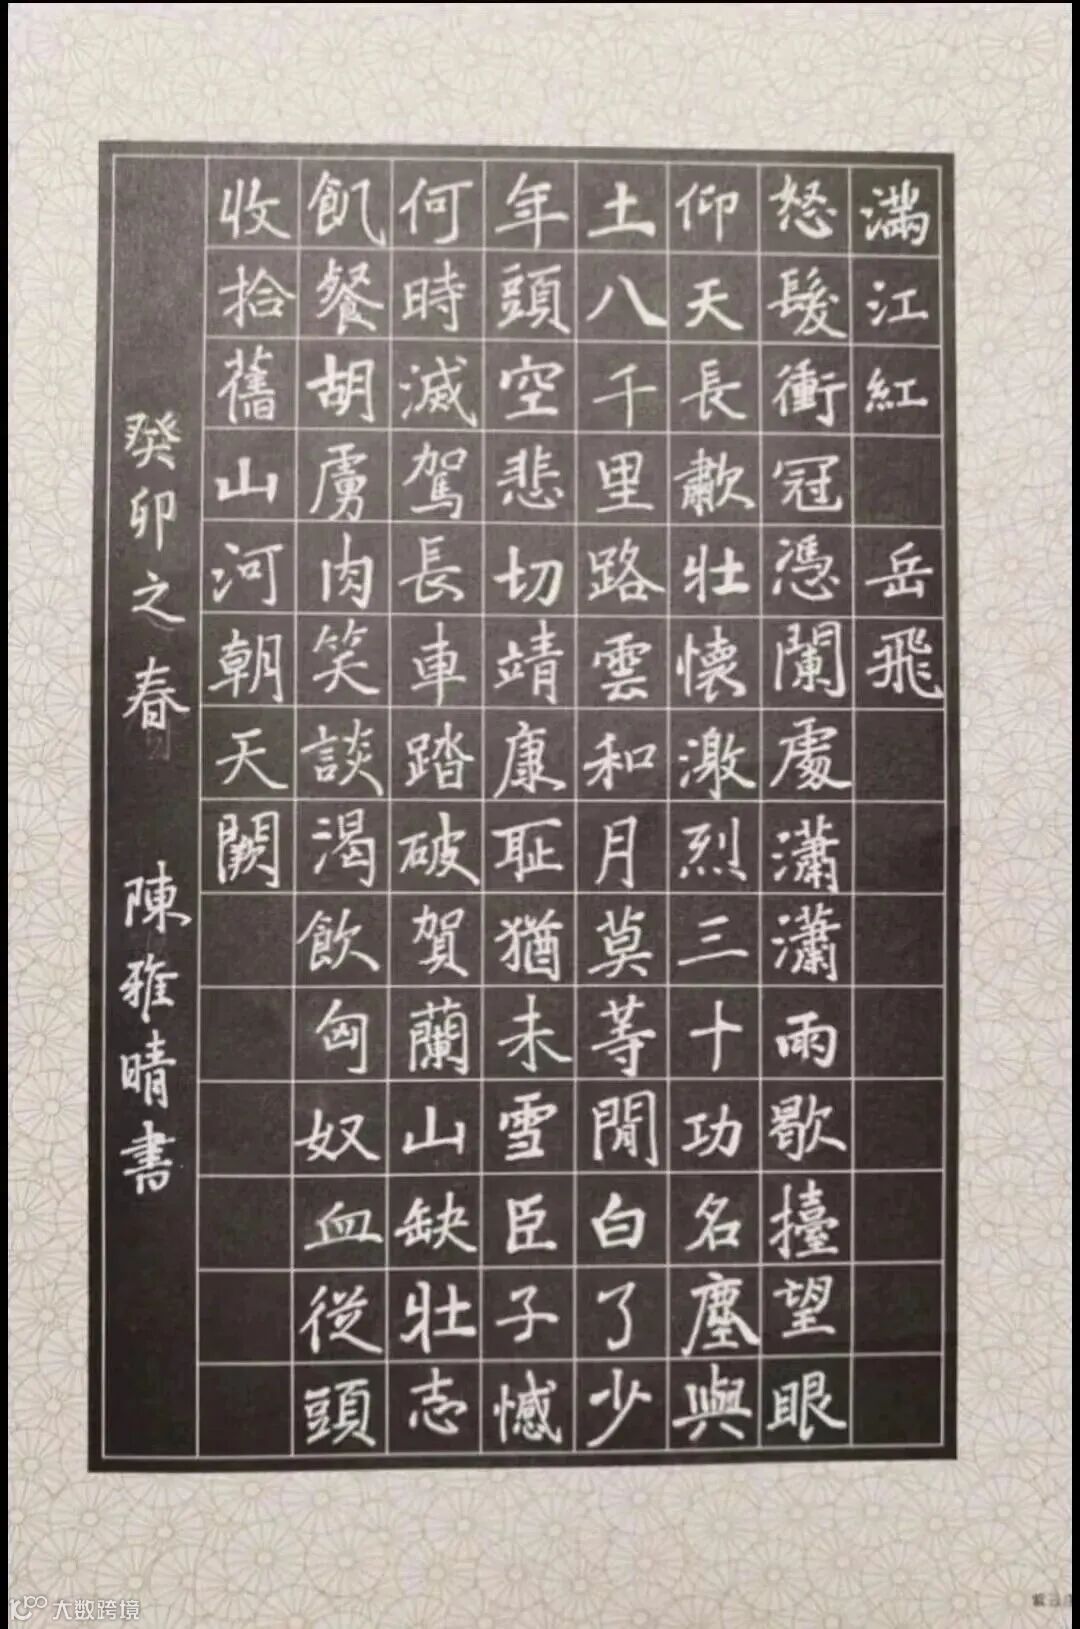 滿江紅 岳飛
怒髮衝冠憑闌處瀟瀟雨歇擡望眼
仰天長歗壯懷激烈三十功名塵與
土八千里路雲和月莫等閒白了少
年頭空悲切靖康耻猶未雪臣子憾
何時滅駕長車踏破賀蘭山缺壯志
飢餐胡虜肉笑談渴飲匈奴血從頭
收拾舊山河朝天闕
癸卯之春 陳雅晴書
大数跨境